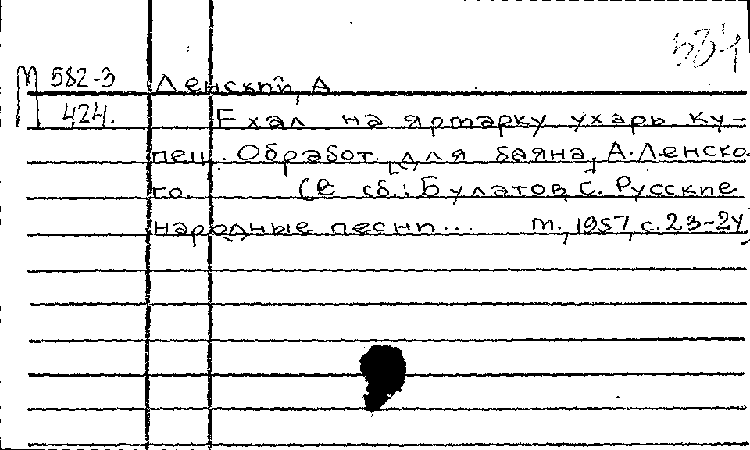 534
М 582-3 Ленский, А
424. Ехал на ярмарку ухарь ку-
пец. Обработ. [для баяна] А. Ленско
го. (В сб.: Булатов, С. Русские
народные песни... М., 1957, с. 23-24)